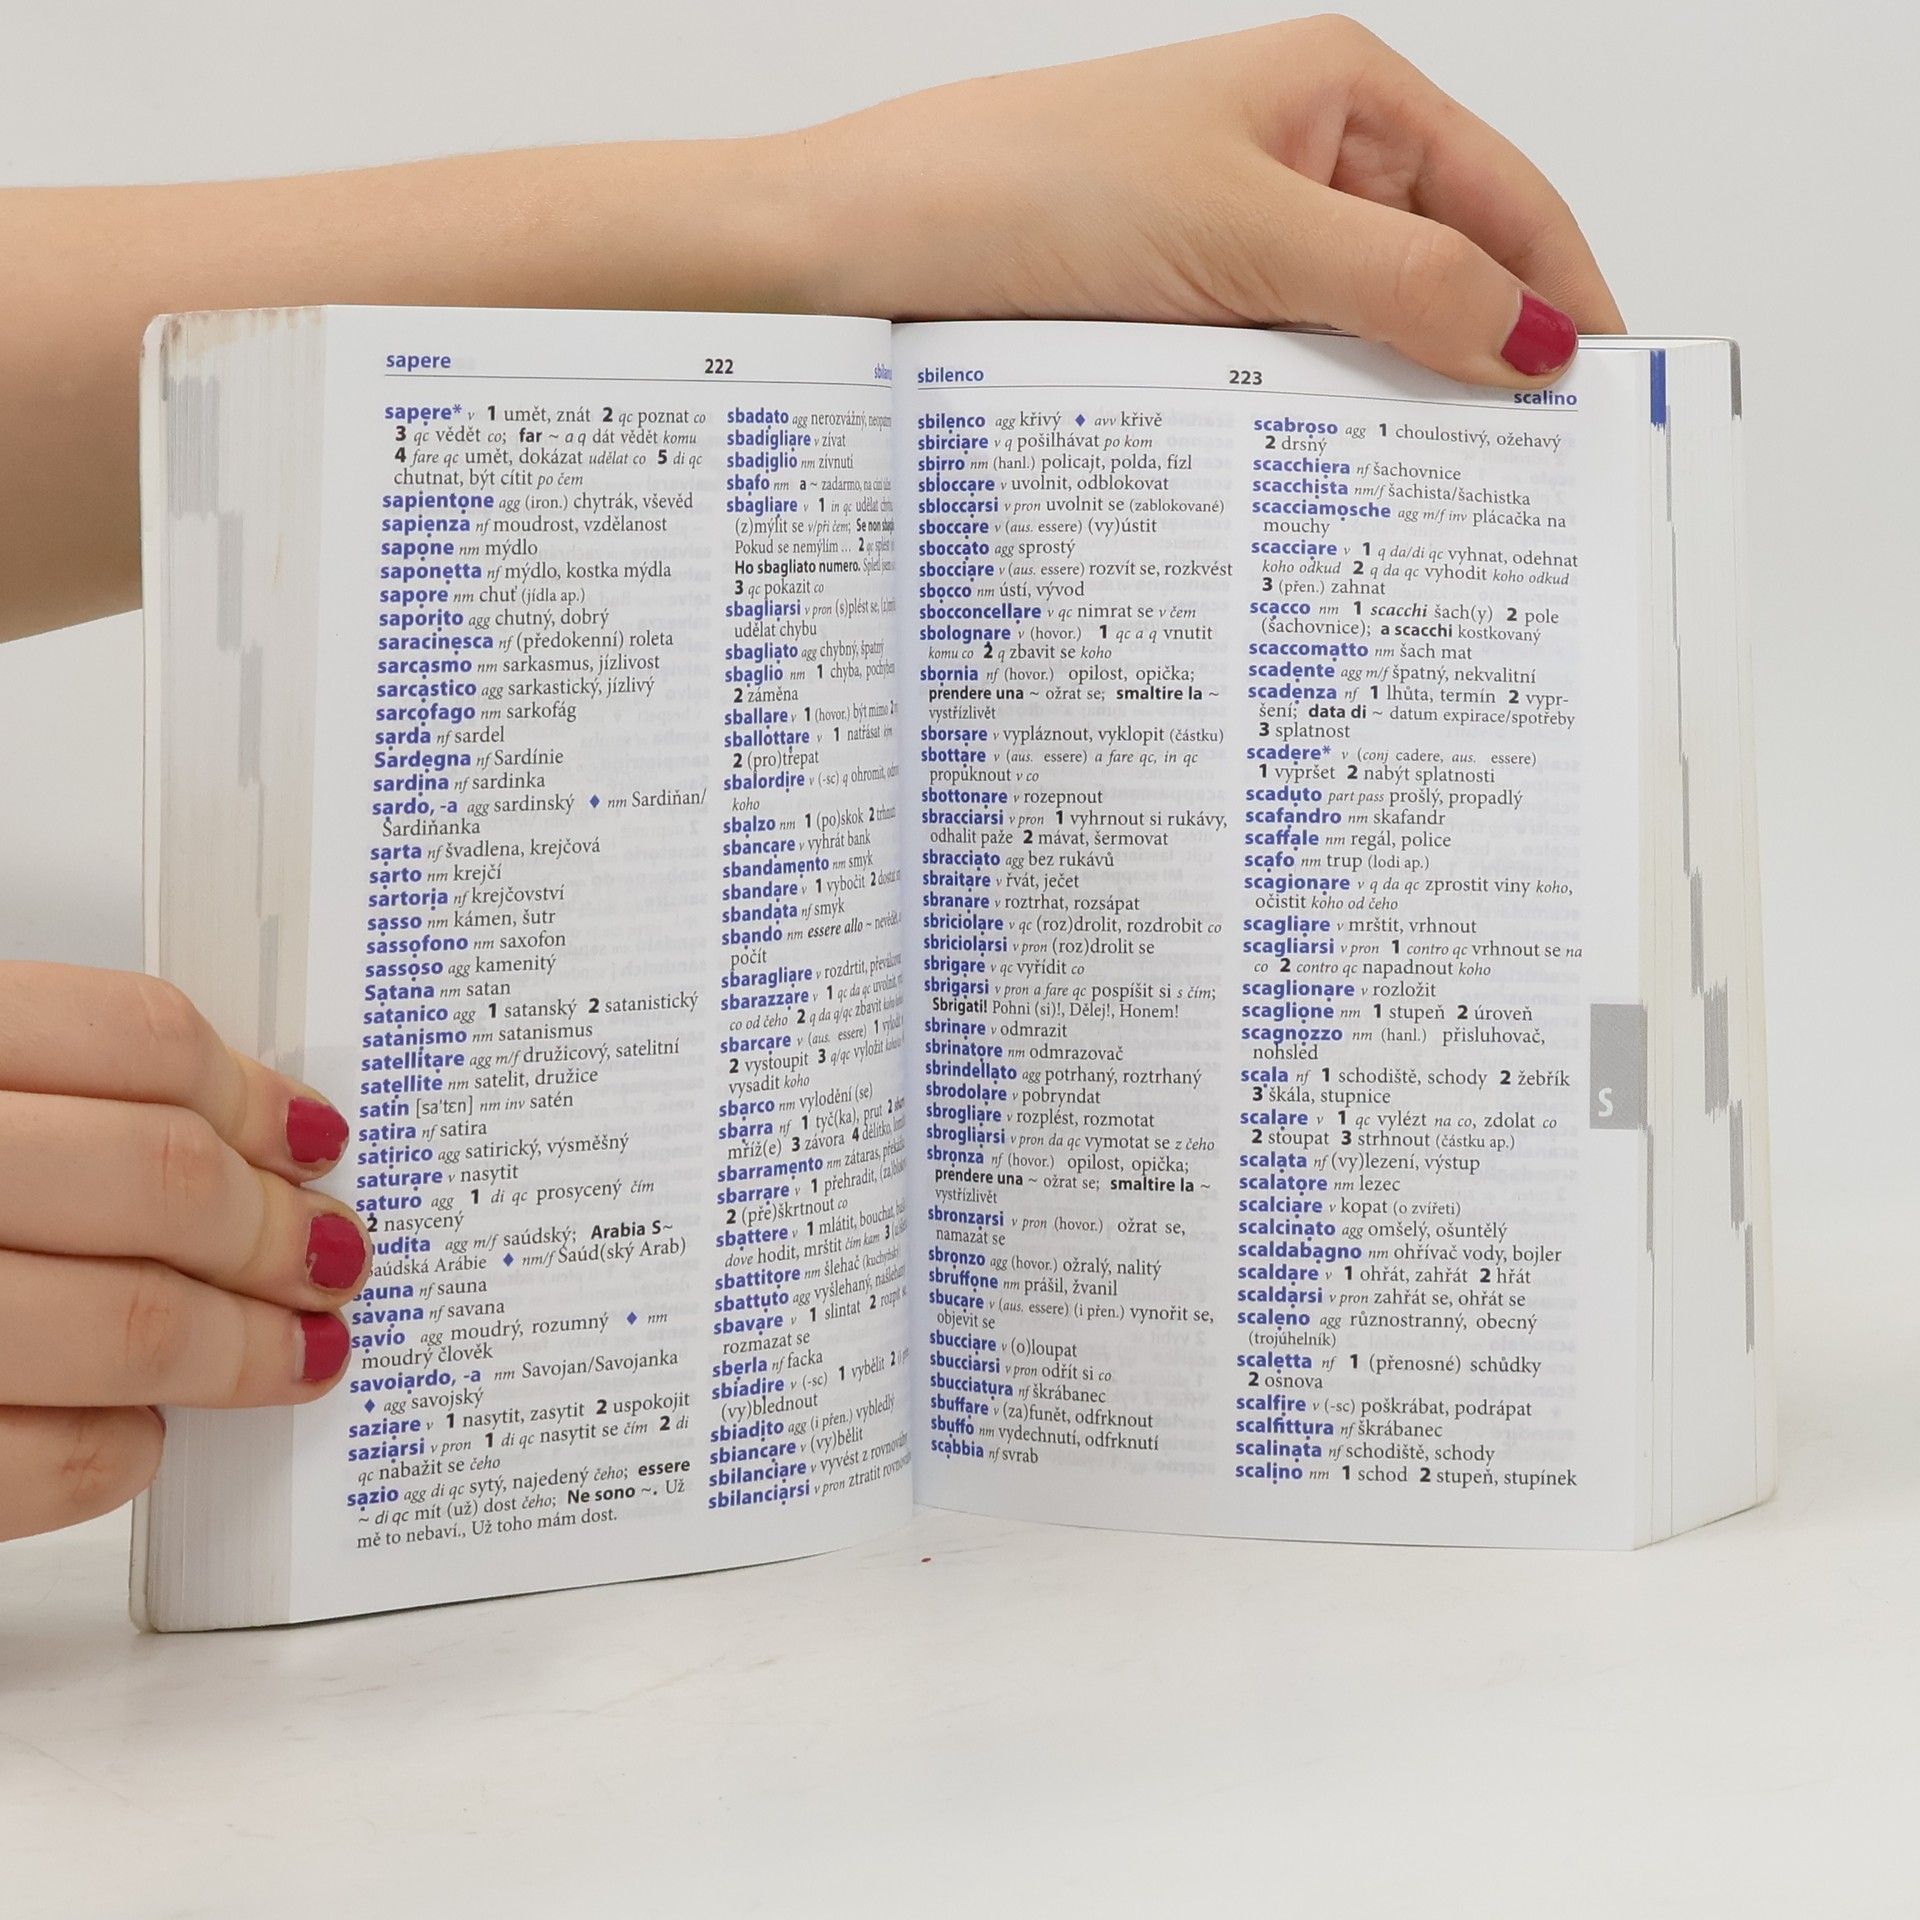 sapere 222
sapere* v 1 umět, znát 2 qc poznat co
3 qc vědět co; far ~ a q dát vědět komu
4 fare qc umět, dokázat udělat co 5 di qc
chutnat, být cítit po čem
sapientone agg (iron.) chytrák, vševěd
sapienza nf moudrost, vzdělanost
sapone nm mýdlo
saponetta nf mýdlo, kostka mýdla
sapore nm chuť (jídla ap.)
saporito agg chutný, dobrý
saracinesca nf (předokenní) roleta
sarcasmo nm sarkasmus, jízlivost
sarcastico agg sarkastický, jízlivý
sarcofago nm sarkofág
sarda nf sardel
Sardegna nf Sardínie
sardina nf sardinka
sardo, -a agg sardinský ♦ nm Sardiňan/
Sardiňanka
sarta nf švadlena, krejčová
sarto nm krejčí
sartoria nf krejčovství
sasso nm kámen, šutr
sassofono nm saxofon
sassoso agg kamenitý
Satana nm satan
satanico agg 1 satanský 2 satanistický
satanismo nm satanismus
satellitare agg m/f družicový, satelitní
satellite nm satelit, družice
satin [sa'tɛn] nm inv satén
satira nf satira
satirico agg satirický, výsměšný
saturare v nasytit
saturo agg 1 di qc prosycený čím
2 nasycený
udita agg m/f saúdský; Arabia S~
Saúdská Arábie ♦ nm/f Saúd(ský Arab)
sauna nf sauna
savana nf savana
savio agg moudrý, rozumný ♦ nm
moudrý člověk
savoiardo, -a nm Savojan/Savojanka
♦ agg savojský
saziare v 1 nasytit, zasytit 2 uspokojit
saziarsi v pron 1 di qc nasytit se čím 2 di
qc nabažit se čeho
sazio agg di qc sytý, najedený čeho; essere
~ di qc mít (už) dost čeho; Ne sono ~. Už
mě to nebaví., Už toho mám dost.
sbadato agg nerozvážný,
sbadigliare v zívat
sbadiglio nm zívnutí
sbafo nm a ~ zadarmo, na cizí
sbagliare v 1 in qc udělat
(z)mýlit se v/při čem; Se non
Pokud se nemýlím ... 2 qc
Ho sbagliato numero.
3 qc pokazit co
sbagliarsi v pron (s)plést se,
udělat chybu
sbagliato agg chybný, špatný
sbaglio nm 1 chyba,
2 záměna
sballare v 1 (hovor.) být mimo
sballottare v 1 natřásat
2 (pro)třepat
sbalordire v (-sc) q ohromit,
koho
sbalzo nm 1 (po)skok 2
sbancare v vyhrát bank
sbandamento nm smyk
sbandare v 1 vybočit 2
sbandata nf smyk
sbando nm essere allo ~
počít
sbaragliare v rozdrtit,
sbarazzare v 1 qc da qc uvolnit,
co od čeho 2 q da q/qc zbavit
sbarcare v (aus. essere) 1
2 vystoupit 3 q/qc vyložit
vysadit koho
sbarco nm vylodění (se)
sbarra nf 1 tyč(ka), prut 2
mříž(e) 3 závora 4 dělítko,
sbarramento nm zátaras,
sbarrare v 1 přehradit,
2 (pře)škrtnout co
sbattere v 1 mlátit, bouchat,
dove hodit, mrštit čím kam 3
sbattitore nm šlehač
sbattuto agg vyšlehaný,
sbavare v 1 slintat 2
rozmazat se
sberla nf facka
sbiadire v (-sc) 1 vybělit 2
(vy)blednout
sbiadito agg (i přen.) vybledlý
sbiancare v (vy)bělit
sbilanciare v vyvést z rovnováhy
sbilanciarsi v pron ztratit
sbilenco 223 scalino
sbilenco agg křivý ♦ avv křivě
sbirciare v q pošilhávat po kom
sbirro nm (hanl.) policajt, polda, fízl
sbloccare v uvolnit, odblokovat
sbloccarsi v pron uvolnit se (zablokované)
sboccare v (aus. essere) (vy)ústit
sboccato agg sprostý
sbocciare v (aus. essere) rozvít se, rozkvést
sbocco nm ústí, vývod
sbocconcellare v qc nimrat se v čem
sbolognare v (hovor.) 1 qc a q vnutit
komu co 2 q zbavit se koho
sbornia nf (hovor.) opilost, opička;
prendere una ~ ožrat se; smaltire la ~
vystřízlivět
sborsare v vypláznout, vyklopit (částku)
sbottare v (aus. essere) a fare qc, in qc
propuknout v co
sbottonare v rozepnout
sbracciarsi v pron 1 vyhrnout si rukávy,
odhalit paže 2 mávat, šermovat
sbracciato agg bez rukávů
sbraitare v řvát, ječet
sbranare v roztrhat, rozsápat
sbriciolare v qc (roz)drolit, rozdrobit co
sbriciolarsi v pron (roz)drolit se
sbrigare v qc vyřídit co
sbrigarsi v pron a fare qc pospíšit si s čím;
Sbrigati! Pohni (si)!, Dělej!, Honem!
sbrinare v odmrazit
sbrinatore nm odmrazovač
sbrindellato agg potrhaný, roztrhaný
sbrodolare v pobryndat
sbrogliare v rozplést, rozmotat
sbrogliarsi v pron da qc vymotat se z čeho
sbronza nf (hovor.) opilost, opička;
prendere una ~ ožrat se; smaltire la ~
vystřízlivět
sbronzarsi v pron (hovor.) ožrat se,
namazat se
sbronzo agg (hovor.) ožralý, nalitý
sbruffone nm prášil, žvanil
sbucare v (aus. essere) (i přen.) vynořit se,
objevit se
sbucciare v (o)loupat
sbucciarsi v pron odřít si co
sbucciatura nf škrábanec
sbuffare v (za)funět, odfrknout
sbuffo nm vydechnutí, odfrknutí
scabbia nf svrab
scabroso agg 1 choulostivý, ožehavý
2 drsný
scacchiera nf šachovnice
scacchista nm/f šachista/šachistka
scacciamosche agg m/f inv plácačka na
mouchy
scacciare v 1 q da/di qc vyhnat, odehnat
koho odkud 2 q da qc vyhodit koho odkud
3 (přen.) zahnat
scacco nm 1 scacchi šach(y) 2 pole
(šachovnice); a scacchi kostkovaný
scaccomatto nm šach mat
scadente agg m/f špatný, nekvalitní
scadenza nf 1 lhůta, termín 2 vypr-
šení; data di ~ datum expirace/spotřeby
3 splatnost
scadere* v (conj cadere, aus. essere)
1 vypršet 2 nabýt splatnosti
scaduto part pass prošlý, propadlý
scafandro nm skafandr
scaffale nm regál, police
scafo nm trup (lodi ap.)
scagionare v q da qc zprostit viny koho,
očistit koho od čeho
scagliare v mrštit, vrhnout
scagliarsi v pron 1 contro qc vrhnout se na
co 2 contro qc napadnout koho
scaglionare v rozložit
scaglione nm 1 stupeň 2 úroveň
scagnozzo nm (hanl.) přisluhovač,
nohsled
scala nf 1 schodiště, schody 2 žebřík
3 škála, stupnice
scalare v 1 qc vylézt na co, zdolat co
2 stoupat 3 strhnout (částku ap.)
scalata nf (vy)lezení, výstup
scalatore nm lezec
scalciare v kopat (o zvířeti)
scalcinato agg omšelý, ošuntělý
scaldabagno nm ohřívač vody, bojler
scaldare v 1 ohřát, zahřát 2 hřát
scaldarsi v pron zahřát se, ohřát se
scaleno agg různostranný, obecný
(trojúhelník)
scaletta nf 1 (přenosné) schůdky
2 osnova
scalfire v (-sc) poškrábat, podrápat
scalfittura nf škrábanec
scalinata nf schodiště, schody
scalino nm 1 schod 2 stupeň, stupínek
S